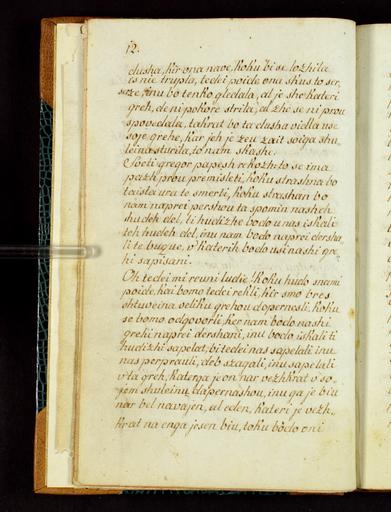 12.
dusha, kir ona nave, koku bi se lozhila
is nie trupla, tedei poide ona skus to ser,
serze inu bo tenko gledala, al je she kateri
greh, de ni pokore strila, al zhe se ni prou
spovedala, takrat bo ta dusha vidla use
soje grehe, kar jeh je zeu zait soiga shu
leina sturila, to nam skashe.
Sveti gregor papesh rekozh: to se ima
pazh prou premisleti, koku strashna bo
ta ista ura te smerti, koku strashan bo
nam naprei pershou ta spomin nasheh
hudeh del, ti hudizhe bodo u nas iskali
teh hudeh del, inu nam bodo naprei dersha
li te buque, v katerih bodo usi nashi gre
hi sapisani.
Oh tedei mi reuni ludie! koku hudo snami
poide, kai bomo tedei rekli, kir smo bres
shtuveina veliku grehou dopernesli, koku
se bomo odgovorli, ker nam bodo nashi
grehi naprei dershani, inu bodo iskali ti
hudizhi sapelat, bi tedei nas sapelali inu
nas perprauli, de b szagali, inu sapelali
v ta greh, katerga je on nar vezhkrat v so-
jem shuleinu dopernashou, inu ga je biu
nar bel navajen, al eden, kateri je vezh
krat na enga jesen biu, toku bodo oni